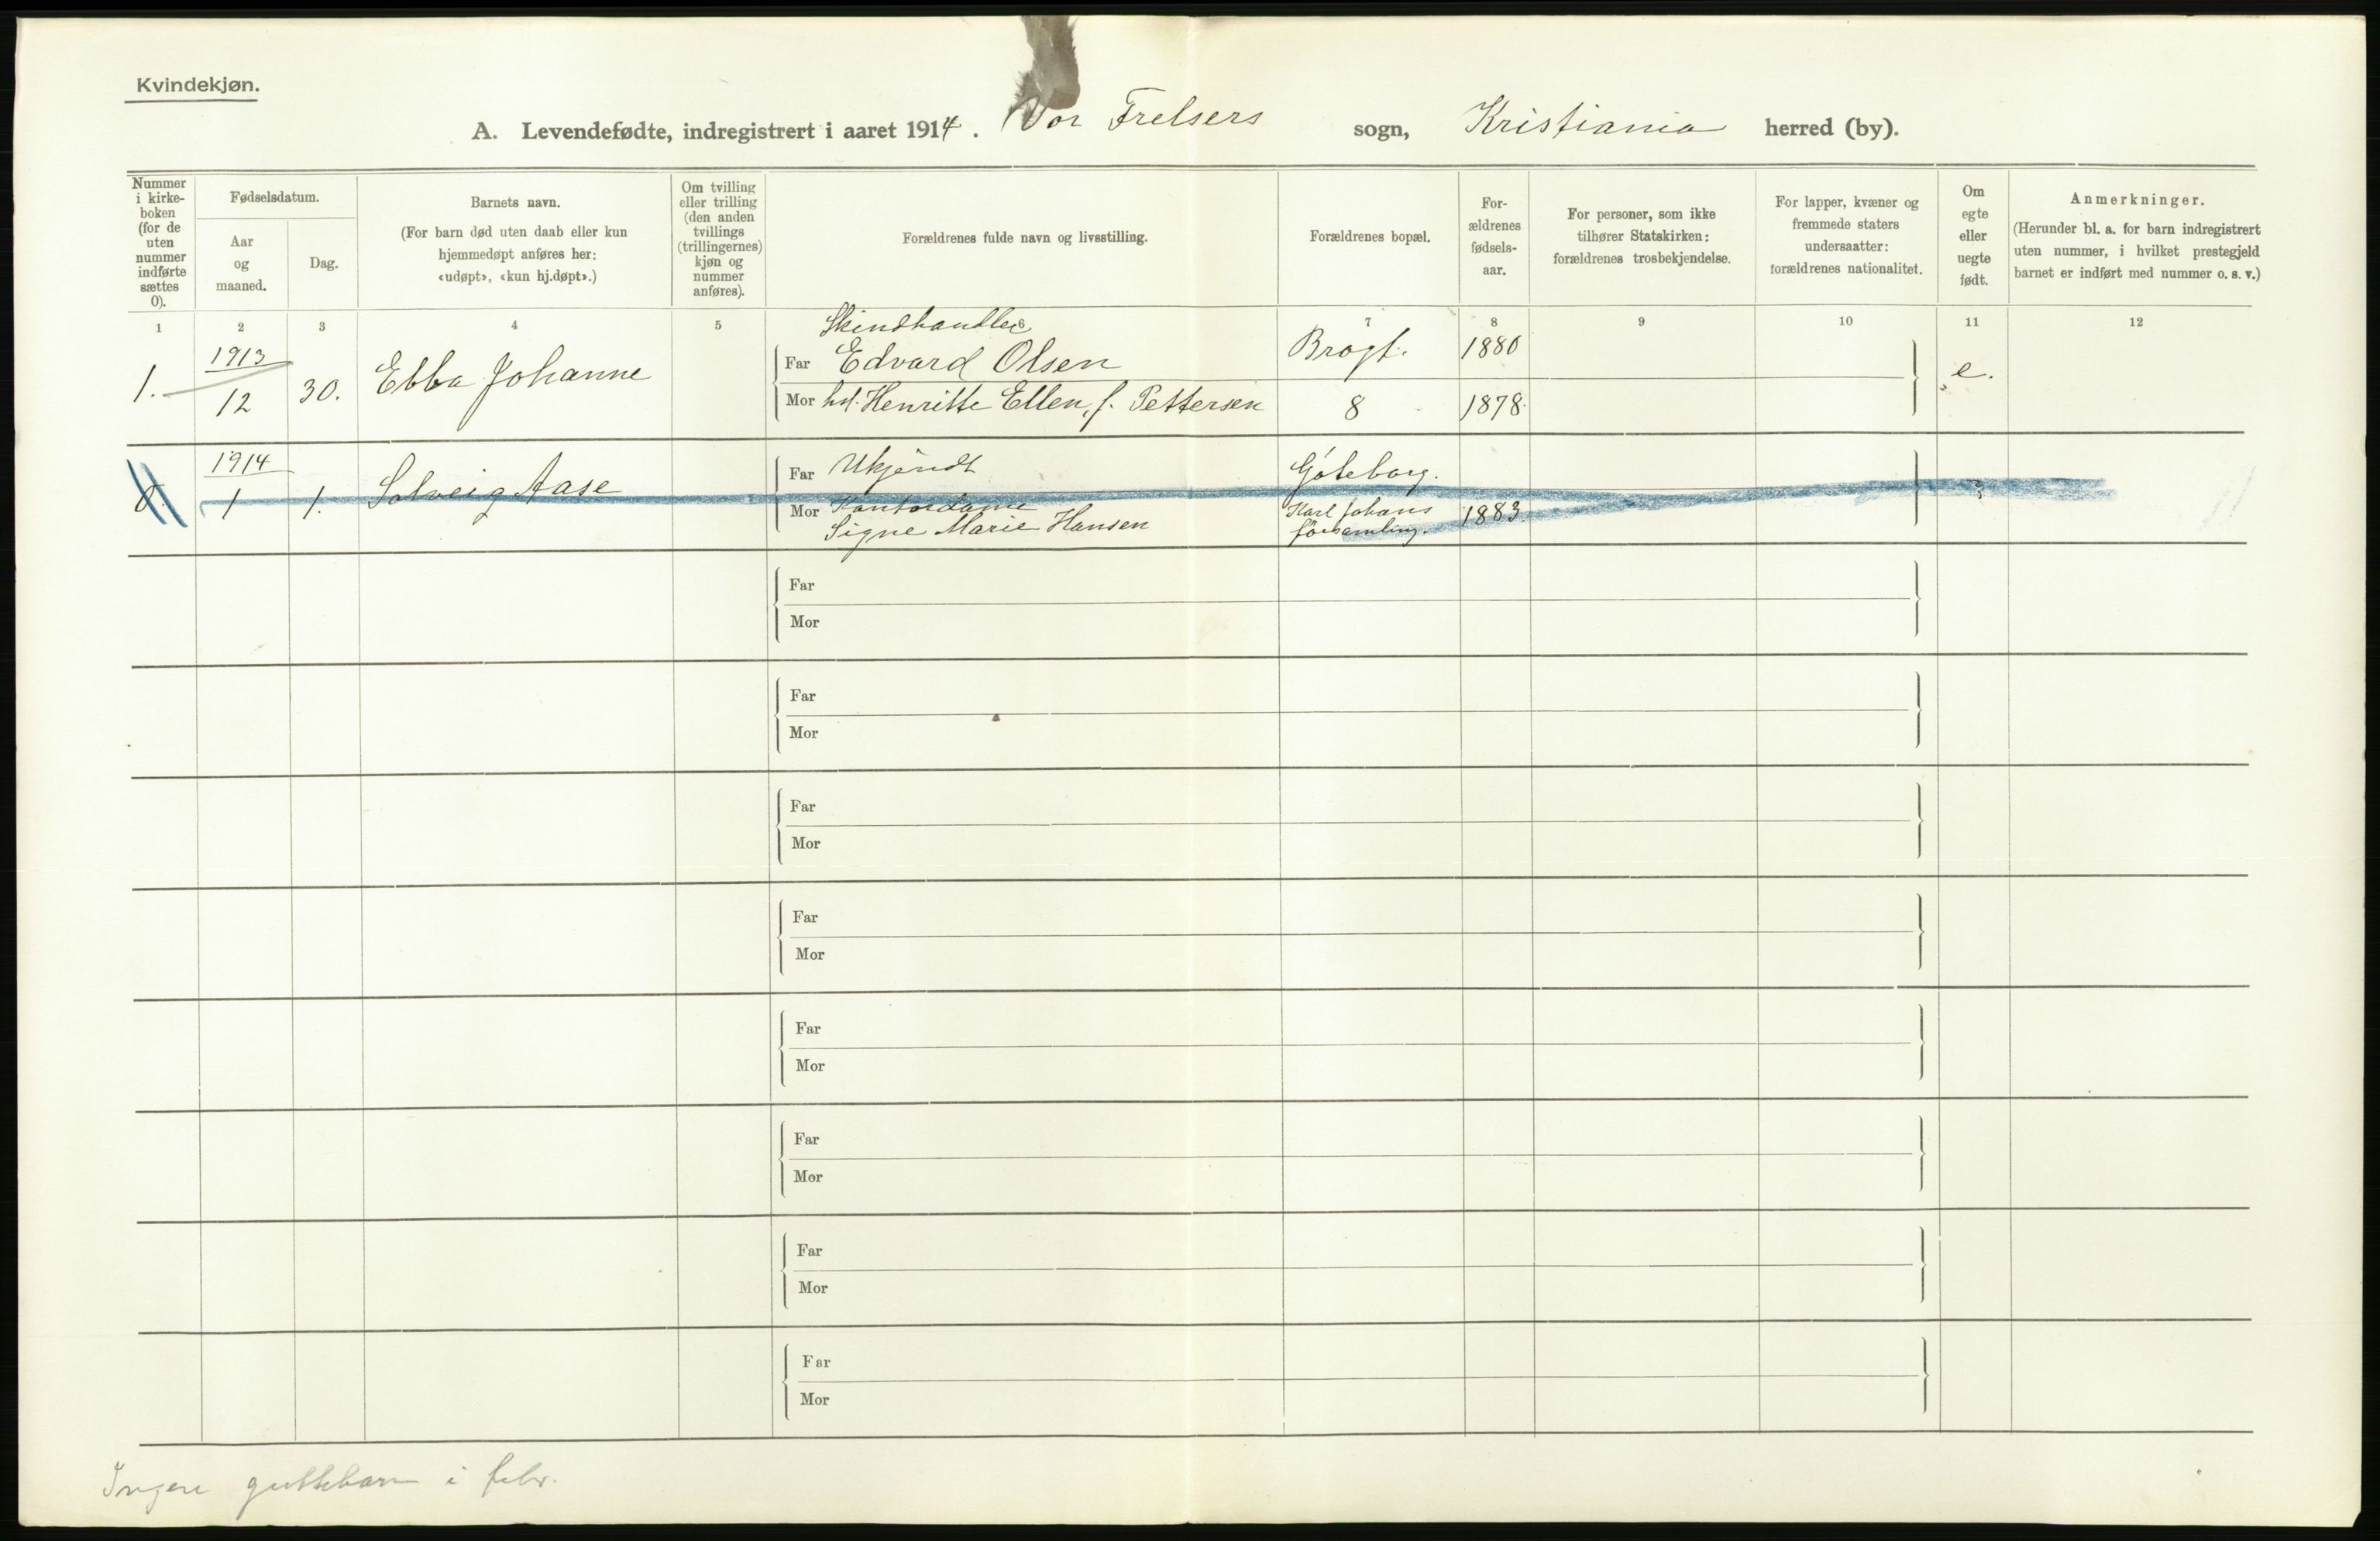 Kvindekjøn.
A. Levendefødte, indregistrert i aaret 1914. Vor Frelsers sogn, Kristiania herred (by).
Nummer i kirkeboken (for de uten nummer indførte sættes 0).
Fødselsdatum.
Aar og maaned.
Dag.
Barnets navn.
(For barn død uten daab eller kun hjemmedøpt anføres her: «udøpt», «kun hj.døpt».)
Om tvilling eller trilling (den anden tvillings (trillingernes) kjøn og nummer anføres).
Forældrenes fulde navn og livsstilling.
Forældrenes bopæl.
Forældrenes fødselsaar.
For personer, som ikke tilhører Statskirken: forældrenes trosbekjendelse.
For lapper, kvæner og fremmede staters undersaatter: forældrenes nationalitet.
Om egte eller uegte født.
Anmerkninger.
(Herunder bl. a. for barn indregistrert uten nummer, i hvilket prestegjeld barnet er indført med nummer o. s. v.)
1 2 3 4 5 6 7 8 9 10 11 12
Skindhandler
1. 1913 12 30. Ebba Johanne Far Edvard Olsen Brogt. 1880 e.
Mor hst. Henritte Ellen, f. Pettersen 8 1878
0. 1914 1 1. Solveig Aase Far Ukjendt Göteborg.
Mor Kontordame Karl Johans 1883.
Signe Marie Hansen församling.
Far
Mor
Far
Mor
Far
Mor
Far
Mor
Far
Mor
Far
Mor
Far
Mor
Far
Mor
Ingen guttebarn i febr.